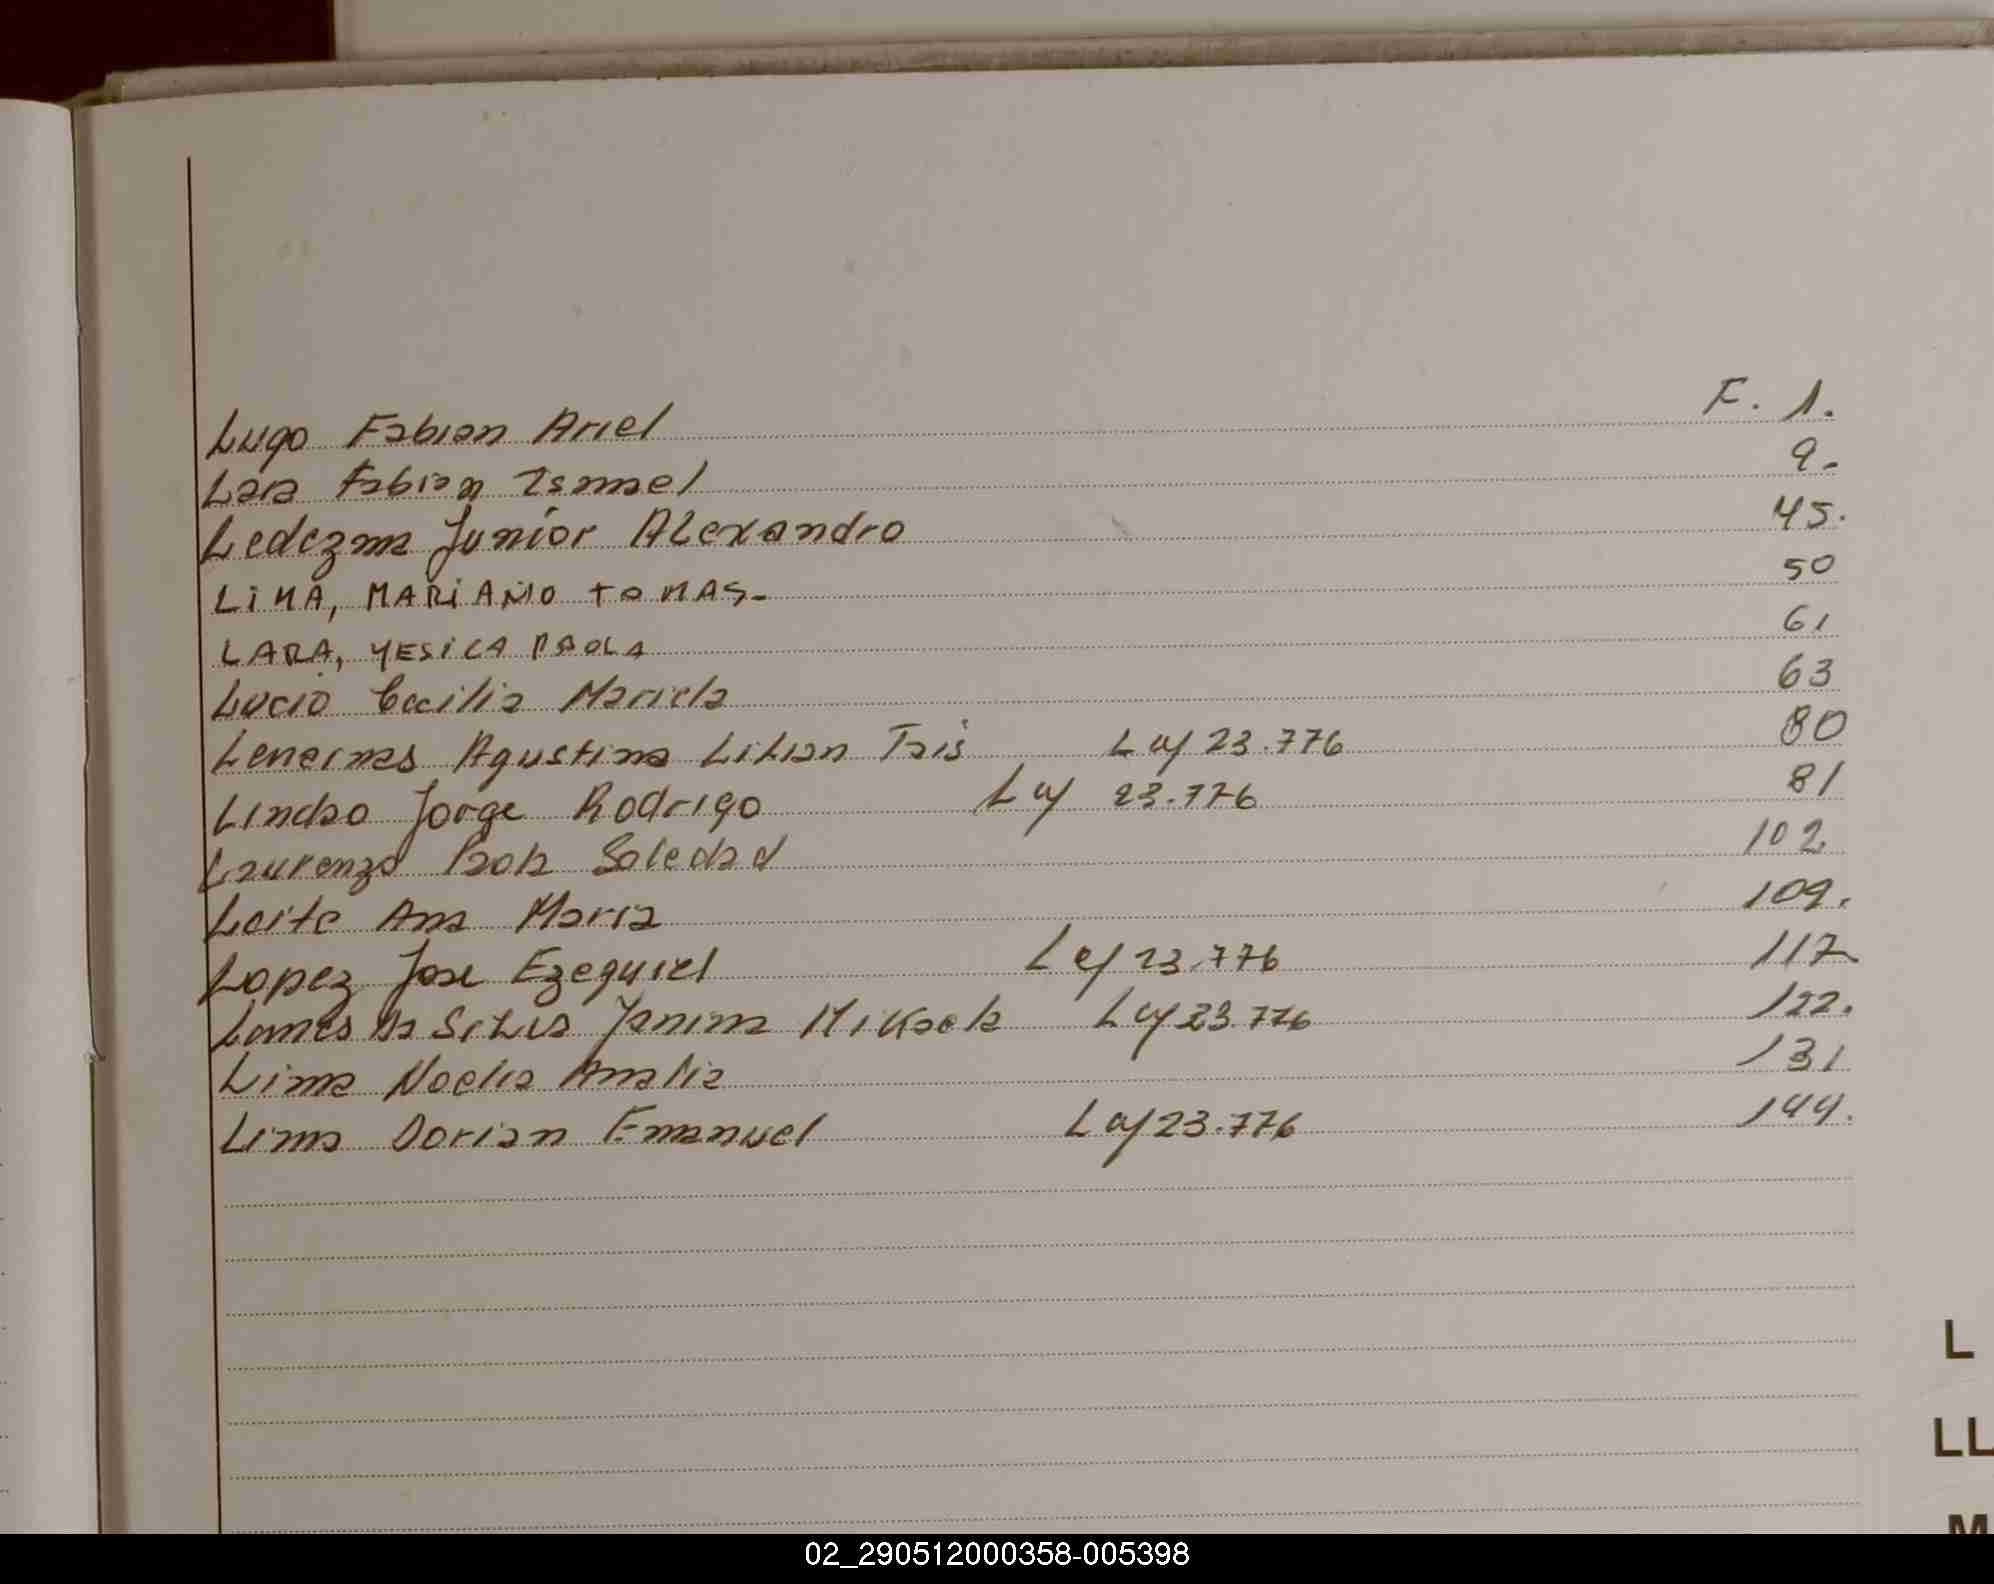 Lugo Fabian Ariel F. 1.
Lara Fabian Ismael 9.
Ledezma Junior Alexandro 45.
LIMA, MARIANO TOMAS.- 50
LARA, YESICA PAOLA 61
Lucio Cecilia Mariela 63
Agustina Lilian Tais Ley 23.776 80
Lindao Jorge Rodrigo Ley 23.776 81
Laurenzo Paola Soledad 102
Leite Ana Maria 109.
Lopez Jose Ezequiel Ley 23.776 117
Da Silva Yanina Mikaela Ley 23.776 122.
Lima Noelia Analia 131
Lima Dorian Emanuel Ley 23.776 144.
L
LL
M
02_290512000358-005398